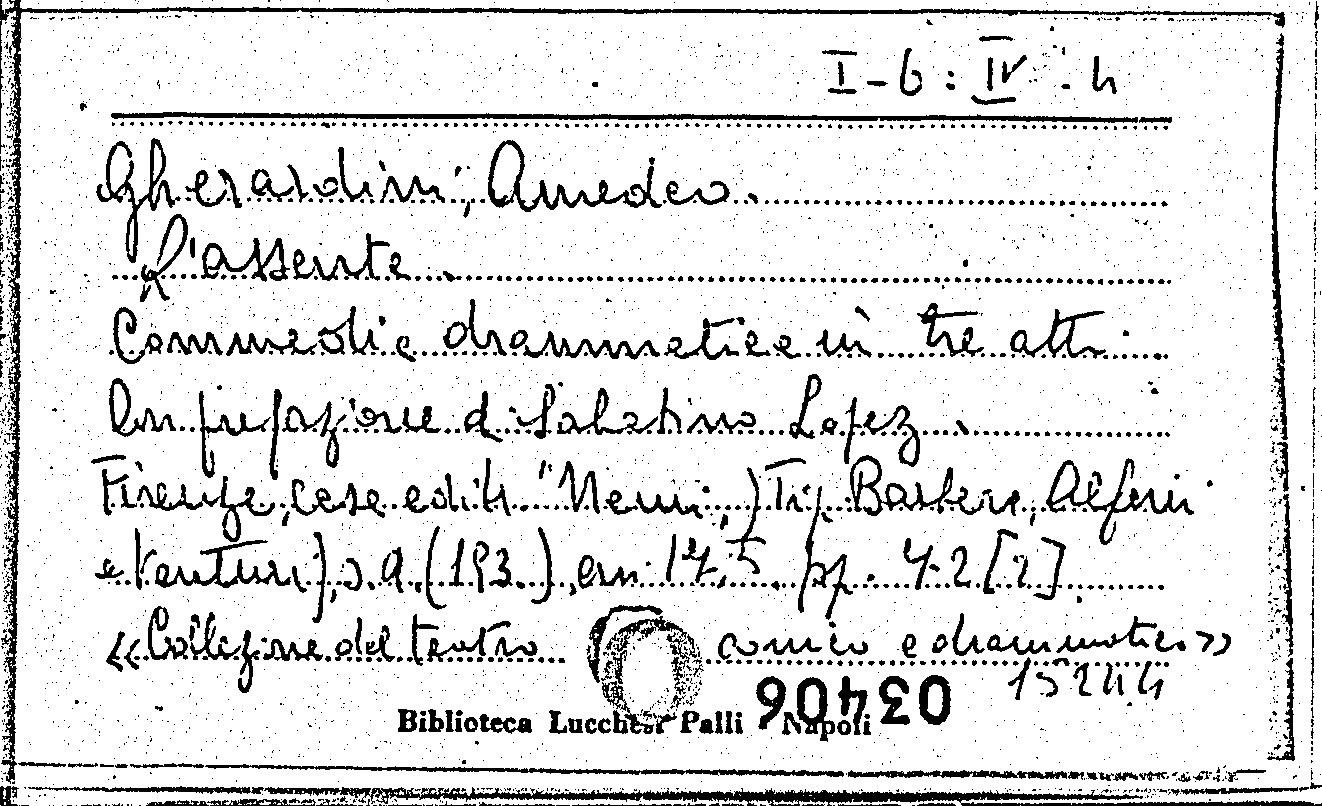 I-6: IV. 4
Gherardini, Amedeo.
L'assente.
Commedia drammatica in tre atti.
Con prefazione di Sabatino Lopez.
Firenze, casa edit. "Nemi", Tip. Barbera, Alfani
e Venturi), s.a. (193.), cm. 17,5. pp. 42 [2]
«Collezione del teatro comico e drammatico»
15244
03406
Biblioteca Lucchesi Palli Napoli